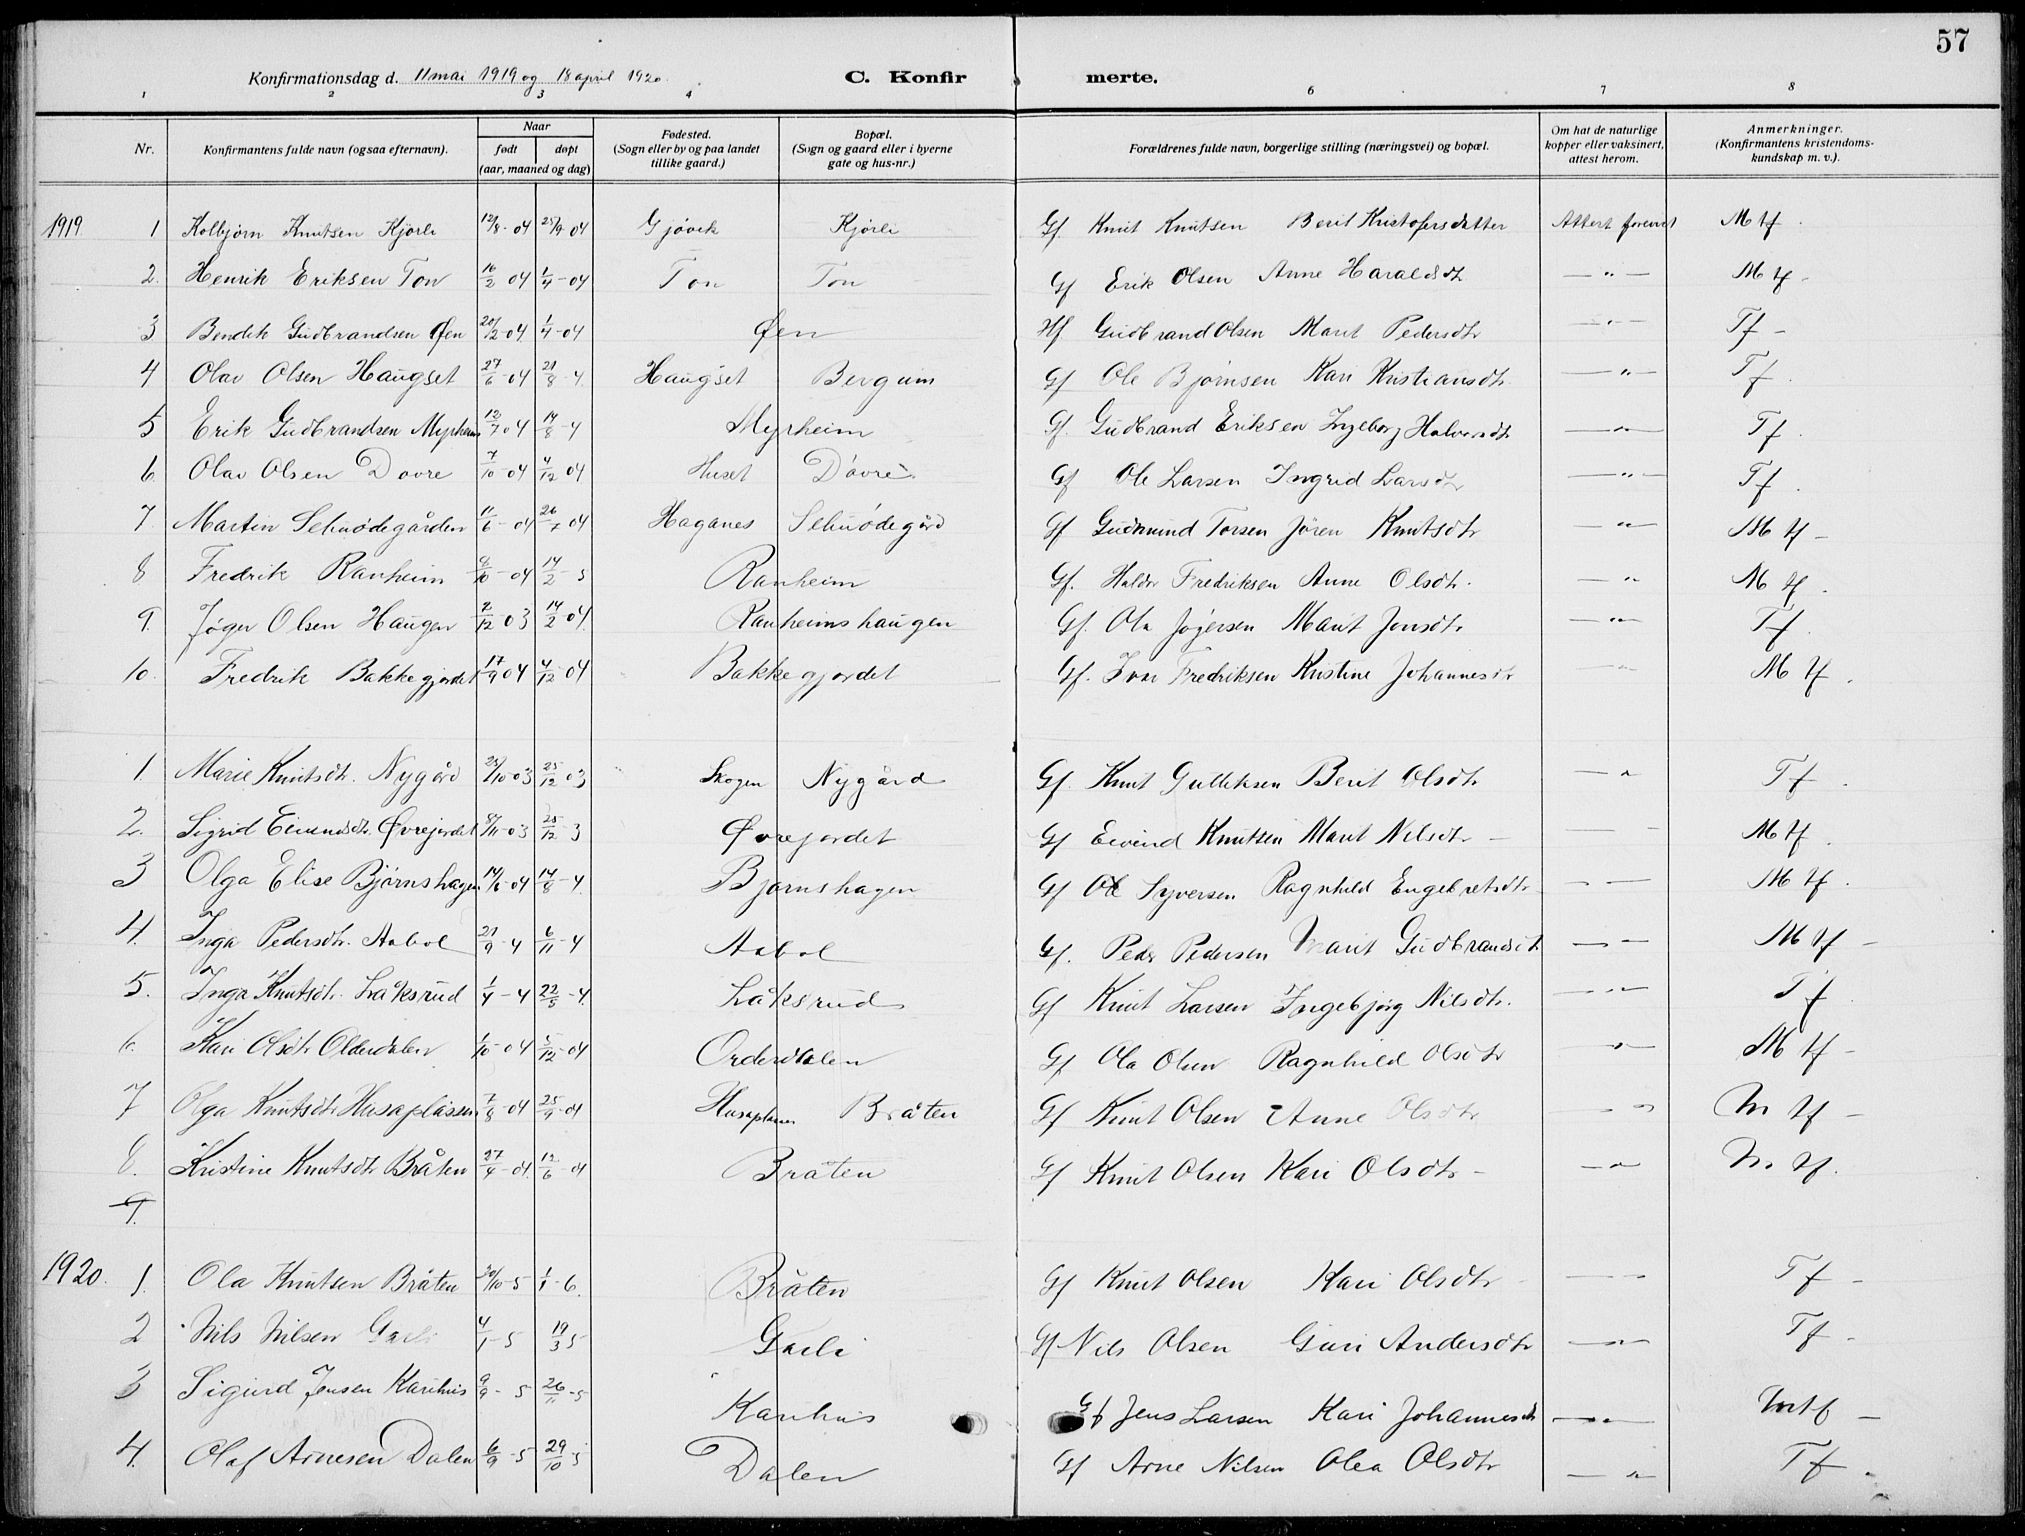 57
Konfirmationsdag d. 11 mai 1919 og 18 april 1920. C. Konfirmerte.
1 2 3 4 6 7 8
Nr. Konfirmantens fulde navn (ogsaa efternavn). Naar født døpt (aar, maaned og dag) Fødested. (Sogn eller by og paa landet tillike gaard.) Bopæl. (Sogn og gaard eller i byerne gate og hus-nr.) Forældrenes fulde navn, borgerlige stilling (næringsvei) og bopæl. Om hat de naturlige kopper eller vaksinert, attest herom. Anmerkninger. (Konfirmantens kristendomskundskap m. v.).
1919 1 Kolbjørn Knutsen Kjørli 12/8-04 25/9 04 Gjøvik Kjørli Gf. Knut Knutsen Berit Kristofersdatter Attest forevist Mtf.
2. Henrik Eriksen Ton 16/2 04 1/4-04 Ton Ton Gf Erik Olsen Anne Haraldsdtr —"— Mtf -
3 Bendik Gudbrandsen Øen 20/12-04 1/4-04 Øen Gudbrand Olsen Marit Pedersdtr —"— Tf -
4 Olav Olsen Haugset 27/6-04 21/8-4 Haugset Bergum Gf Ole Bjørnsen Kari Kristiansdtr. —"— Tf.
5 Erik Gudbrandsen Myrheim 12/7 04 14/8-4 Myrheim Gf. Gudbrand Eriksen Ingeborg Halvorsdtr —"— Tf.
6 Olav Olsen Dovre 7/10-04 4/12 04 Huset Dovre Gf Ole Larsen Ingrid Larsdtr —"— Tf.
7 Martin Selmødegården 11/6-04 26/7 04 Haganes Selmødegård Gf Gudmund Torsen Jøren Knutsdtr —"— Mtf -
8 Fredrik Ranheim /10-04 14/2-5 Ranheim Gf. Haldor Fredriksen Anne Olsdtr. —"— Mtf.
9. Jøger Olsen Haugen 2/12 03 14/2 04. Ranheimshaugen Gf. Ola Jøgersen Marit Jonsdtr —"— Tf.
10. Fredrik Bakkegjordet 17/9 04 4/12 04 Bakkegjordet Gf. Ivar Fredriksen Kristine Johannesdtr —"— Mtf.
1. Marie Knutsdtr. Nygård /10-03 25/12 03 Skogen Nygård Gf. Knut Gulleksen Berit Olsdtr —"— Tf.
2. Sigrid Eivindsdtr. Øvrejordet 8/11-03 25/12 3 Øvrejordet Gf Eivind Knutsen Marit Nilsdtr - — — Mtf.
3 Olga Elise Bjørnshagen 14/6-04 14/8-4. Bjørnshagen Gf Ole Syversen Ragnhild Engebretsdtr — — Mtf.
4. Inga Pedersdtr. Aabol 21/9-4 6/11-4 Aabol Gf. Peder Pedersen Marit Gudbrandsdtr — — Mtf -
5. Inga Knutsdtr. Låksrud 1/4-4 22/5-4. Låksrud Gf Knut Larsen Ingebjørg Nilsdtr. —"— Tf.
6. Kari Olsdtr Olderdalen 1/10-04 5/12-04 Orderdalen Gf Ola Olsen Ragnhild Olsdtr —"— Mtf -
7 Olga Knutsdtr Husaplassen 7/8-04 25/9-04 Husaplassen Bråten Gf Knut Olsen Anne Olsdtr —"— Mtf -
8. Kristine Knutsdtr Bråten 27/4-04. 12/6-04 Bråten Gf Knut Olsen Kari Olsdtr - —"— Mtf.
9.
1920. 1. Ola Knutsen Bråten 20/10-5 1/1-6. Bråten Gf Knut Olsen Kari Olsdtr — — Tf -
2 Nils Nilsen Garli 4/1-5 19/3 5 Garli Gf Nils Olsen Guri Andersdtr —"— Tf -
3 Sigurd Jensen Karihus 9/9-5 26/11-5 Karihus Gf Jens Larsen Kari Johannesdtr —"— Mtf -
4. Olaf Arnesen Dalen 6/9-5 29/10-5 Dalen Gf Arne Nilsen Olea Olsdtr —"— Tf.